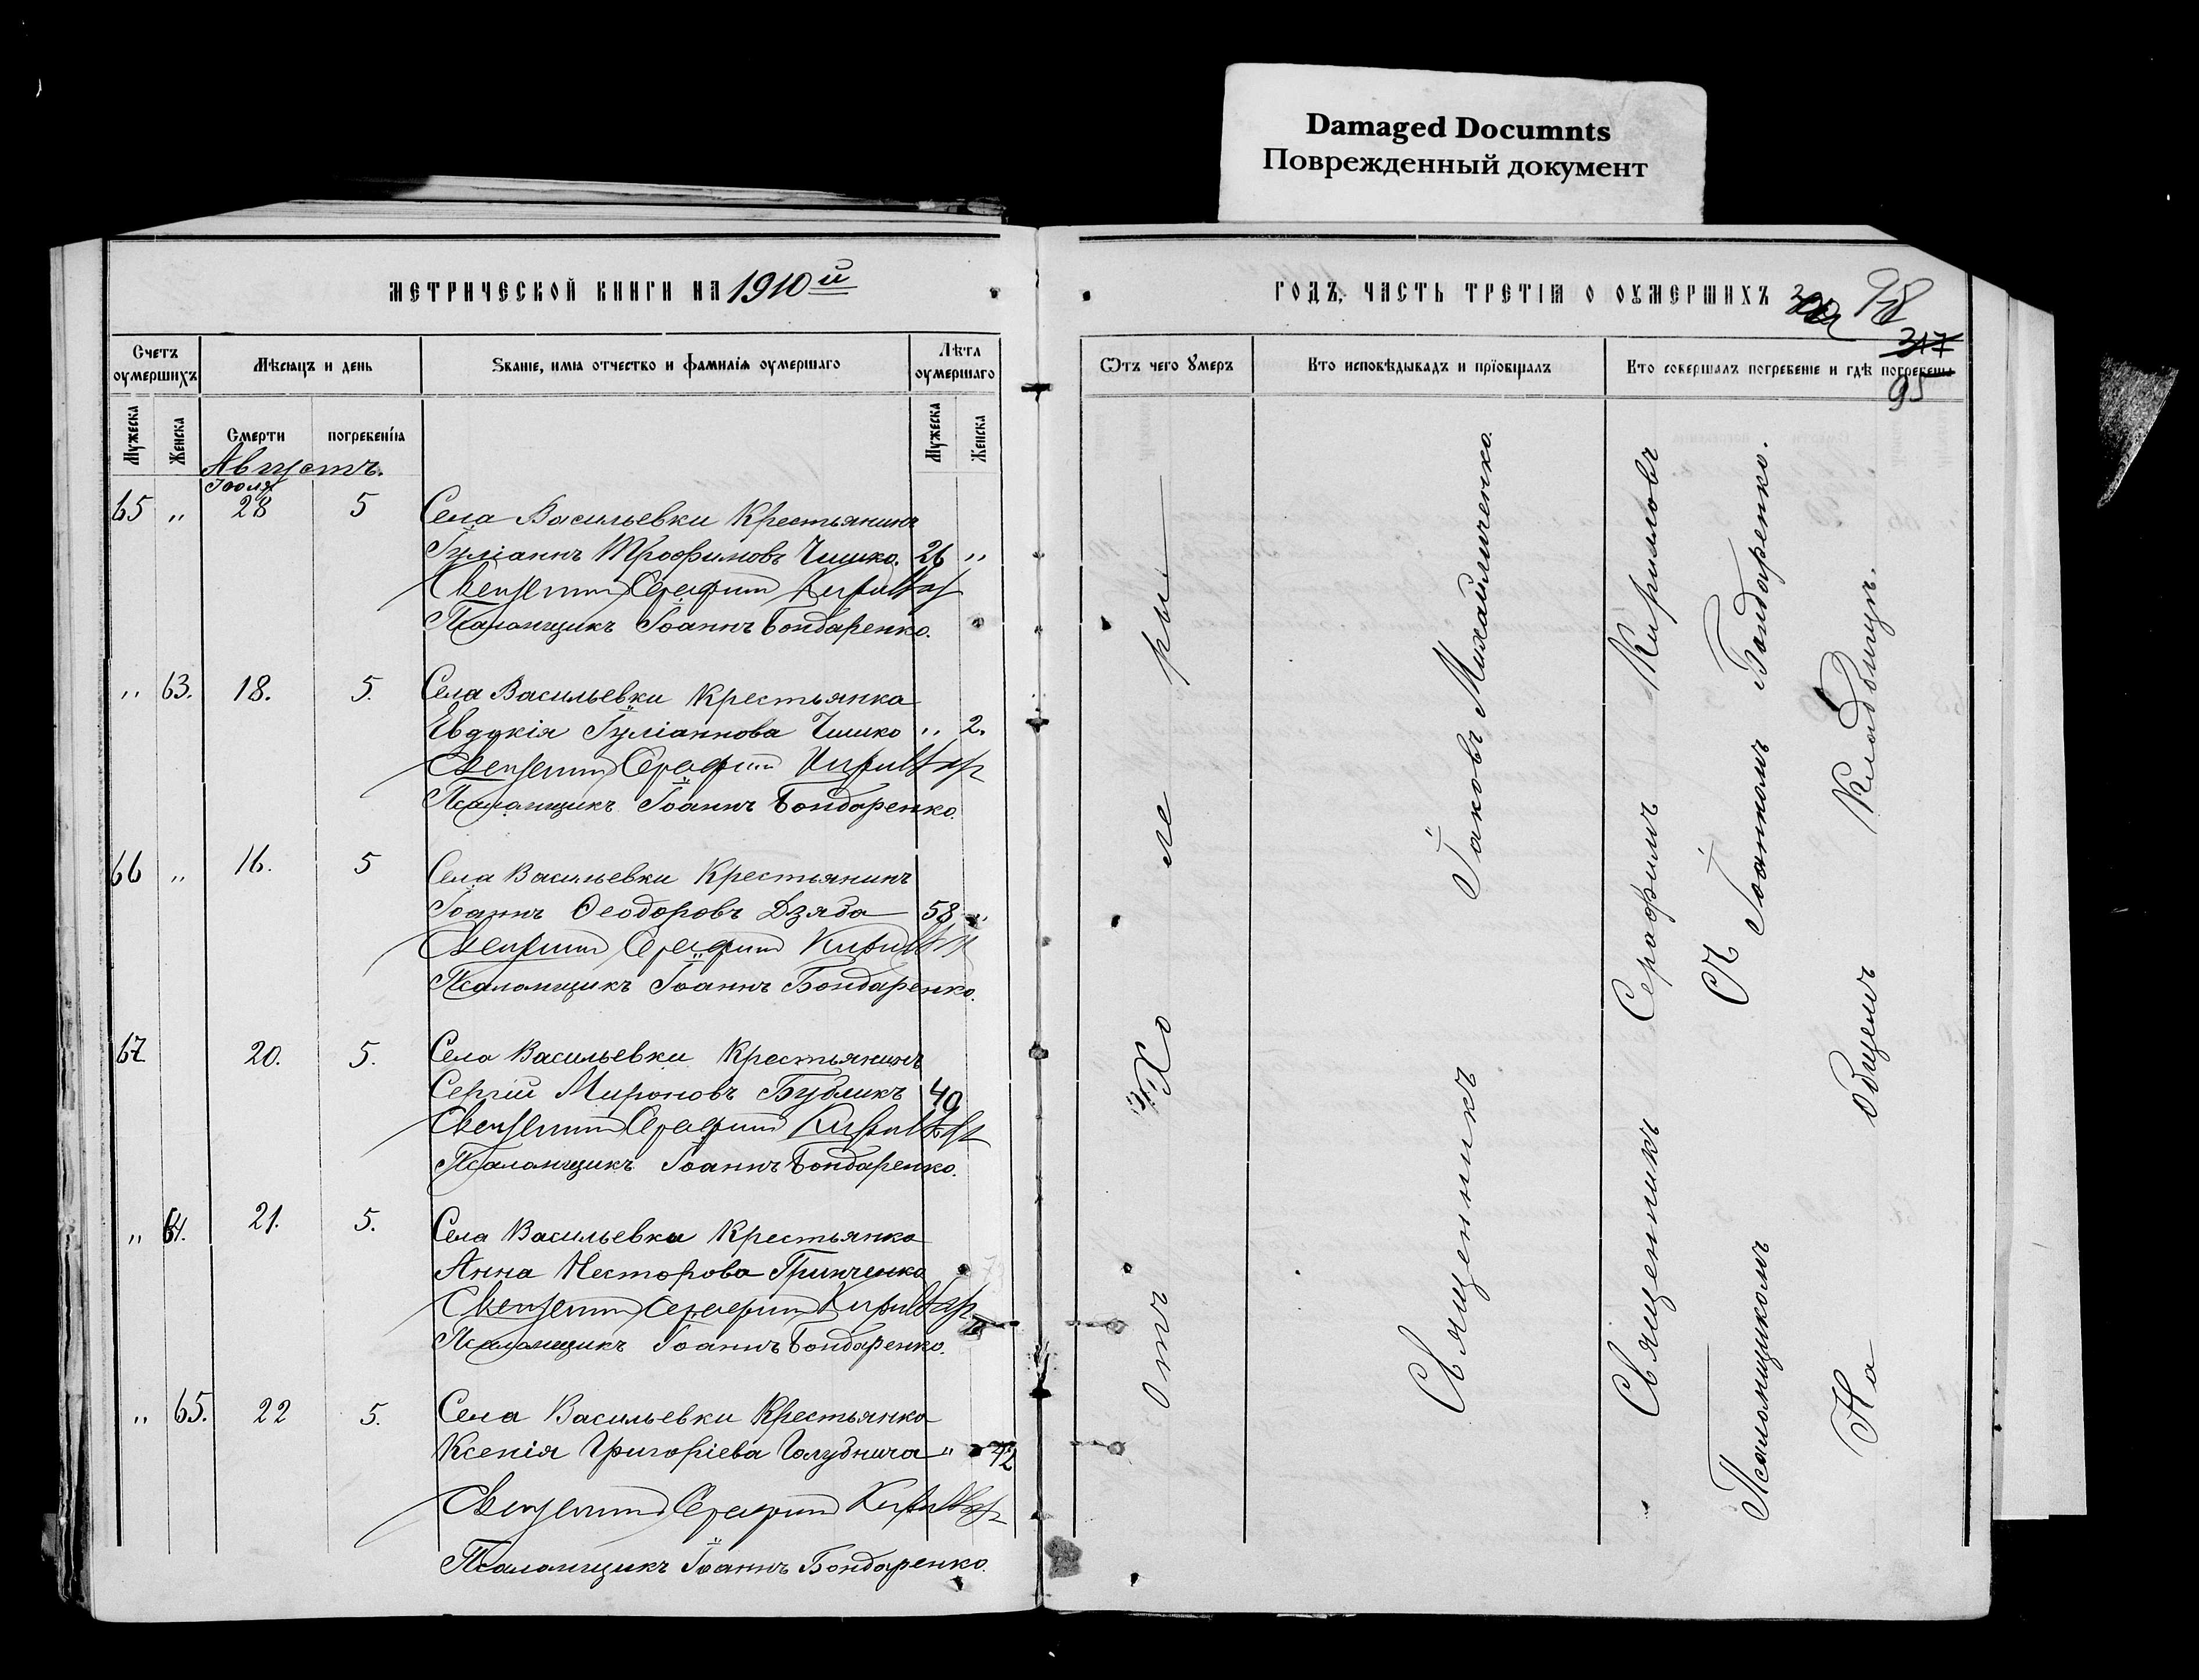 Damaged Documnts
Поврежденный документ
МЕТРИЧЕСКОЙ КНИГИ НА 1910й
Счетъ оумершихъ
Мѣсяцъ и день
Званіе, имя отчество и фамилія оумершаго
Лѣта оумершаго
Мужеска
Женска
Смерти
погребенія
Мужеска
Женска
Августъ.
Іюля
65 " 28 5 Села Васильевки Крестьянинъ
Іуліанъ Трофимовъ Чишко. 26 "
Священникъ Серафим
Псаломщикъ Іоаннъ Бондаренко.
" 63. 18. 5. Села Васильевки Крестьянка
Евдокія Іуліанова Чишко " 2.
Священникъ Серафим
Псаломщикъ Іоаннъ Бондаренко.
66 " 16. 5 Села Васильевки Крестьянинъ
Іоаннъ Ѳеодоровъ Дзяба 58 "
Священникъ Серафим
Псаломщикъ Іоаннъ Бондаренко.
67 20. 5. Села Васильевки Крестьянинъ
Сергій Мироновъ Бубликъ 40
Священникъ Серафим
Псаломщикъ Іоаннъ Бондаренко.
" 64. 21. 5. Села Васильевка Крестьянка
Анна Несторова Гринченко
Священникъ Серафим
Псаломщикъ Іоаннъ Бондаренко.
" 65. 22 5. Села Васильевки Крестьянка
Ксенія Григоріева "
Священникъ Серафим
Псаломщикъ Іоаннъ Бондаренко.
ГОДЪ, ЧАСТЬ ТРЕТІЯ О ОУМЕРШИХЪ
98
317
95
Ѿтъ чего Умеръ
Кто исповѣдывалъ и пріобщалъ
Кто совершалъ погребеніе и гдѣ погребены
Отъ Холеры
Священникъ Іаковъ Михайличенко.
Священникъ Серафимъ Кирилловъ
Съ
Псаломщикомъ Іоанномъ Бондаренко.
На общемъ Кладбищѣ.